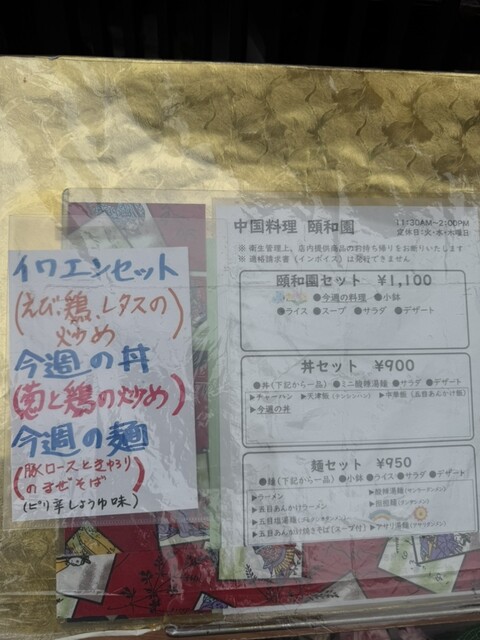 イワエンセット
(えび、鶏、レタスの
炒め
今週の丼
と鶏の炒め)
今週の麺
(豚ロースときゅうり
のまぜそば)
(ピリ辛しょうゆ味)
中国料理 頤和園
11:30AM~2:00PM
定休日:火・水・木曜日
※ 衛生管理上、店内提供商品のお持ち帰りをお断りいたします
※ 適格請求書(インボイス)は発行できません
頤和園セット ¥1,100
●今週の料理 ●小鉢
●ライス ●スープ ●サラダ ●デザート
丼セット ¥900
●丼(下記から一品) ●ミニ酸辣湯麺 ●サラダ ●デザート
▶チャーハン ▶天津飯(テンシンハン) ▶中華飯(五目あんかけ飯)
▶今週の丼
麺セット ¥950
●麺(下記から一品) ●小鉢 ●ライス ●サラダ ●デザート
▶ラーメン ▶酸辣湯麺(サンラータンメン)
▶五目あんかけラーメン ▶担担麺(タンタンメン)
▶五目塩湯麺
▶五目あんかけ焼きそば(スープ付) ▶アサリ湯麺(アサリタンメン)